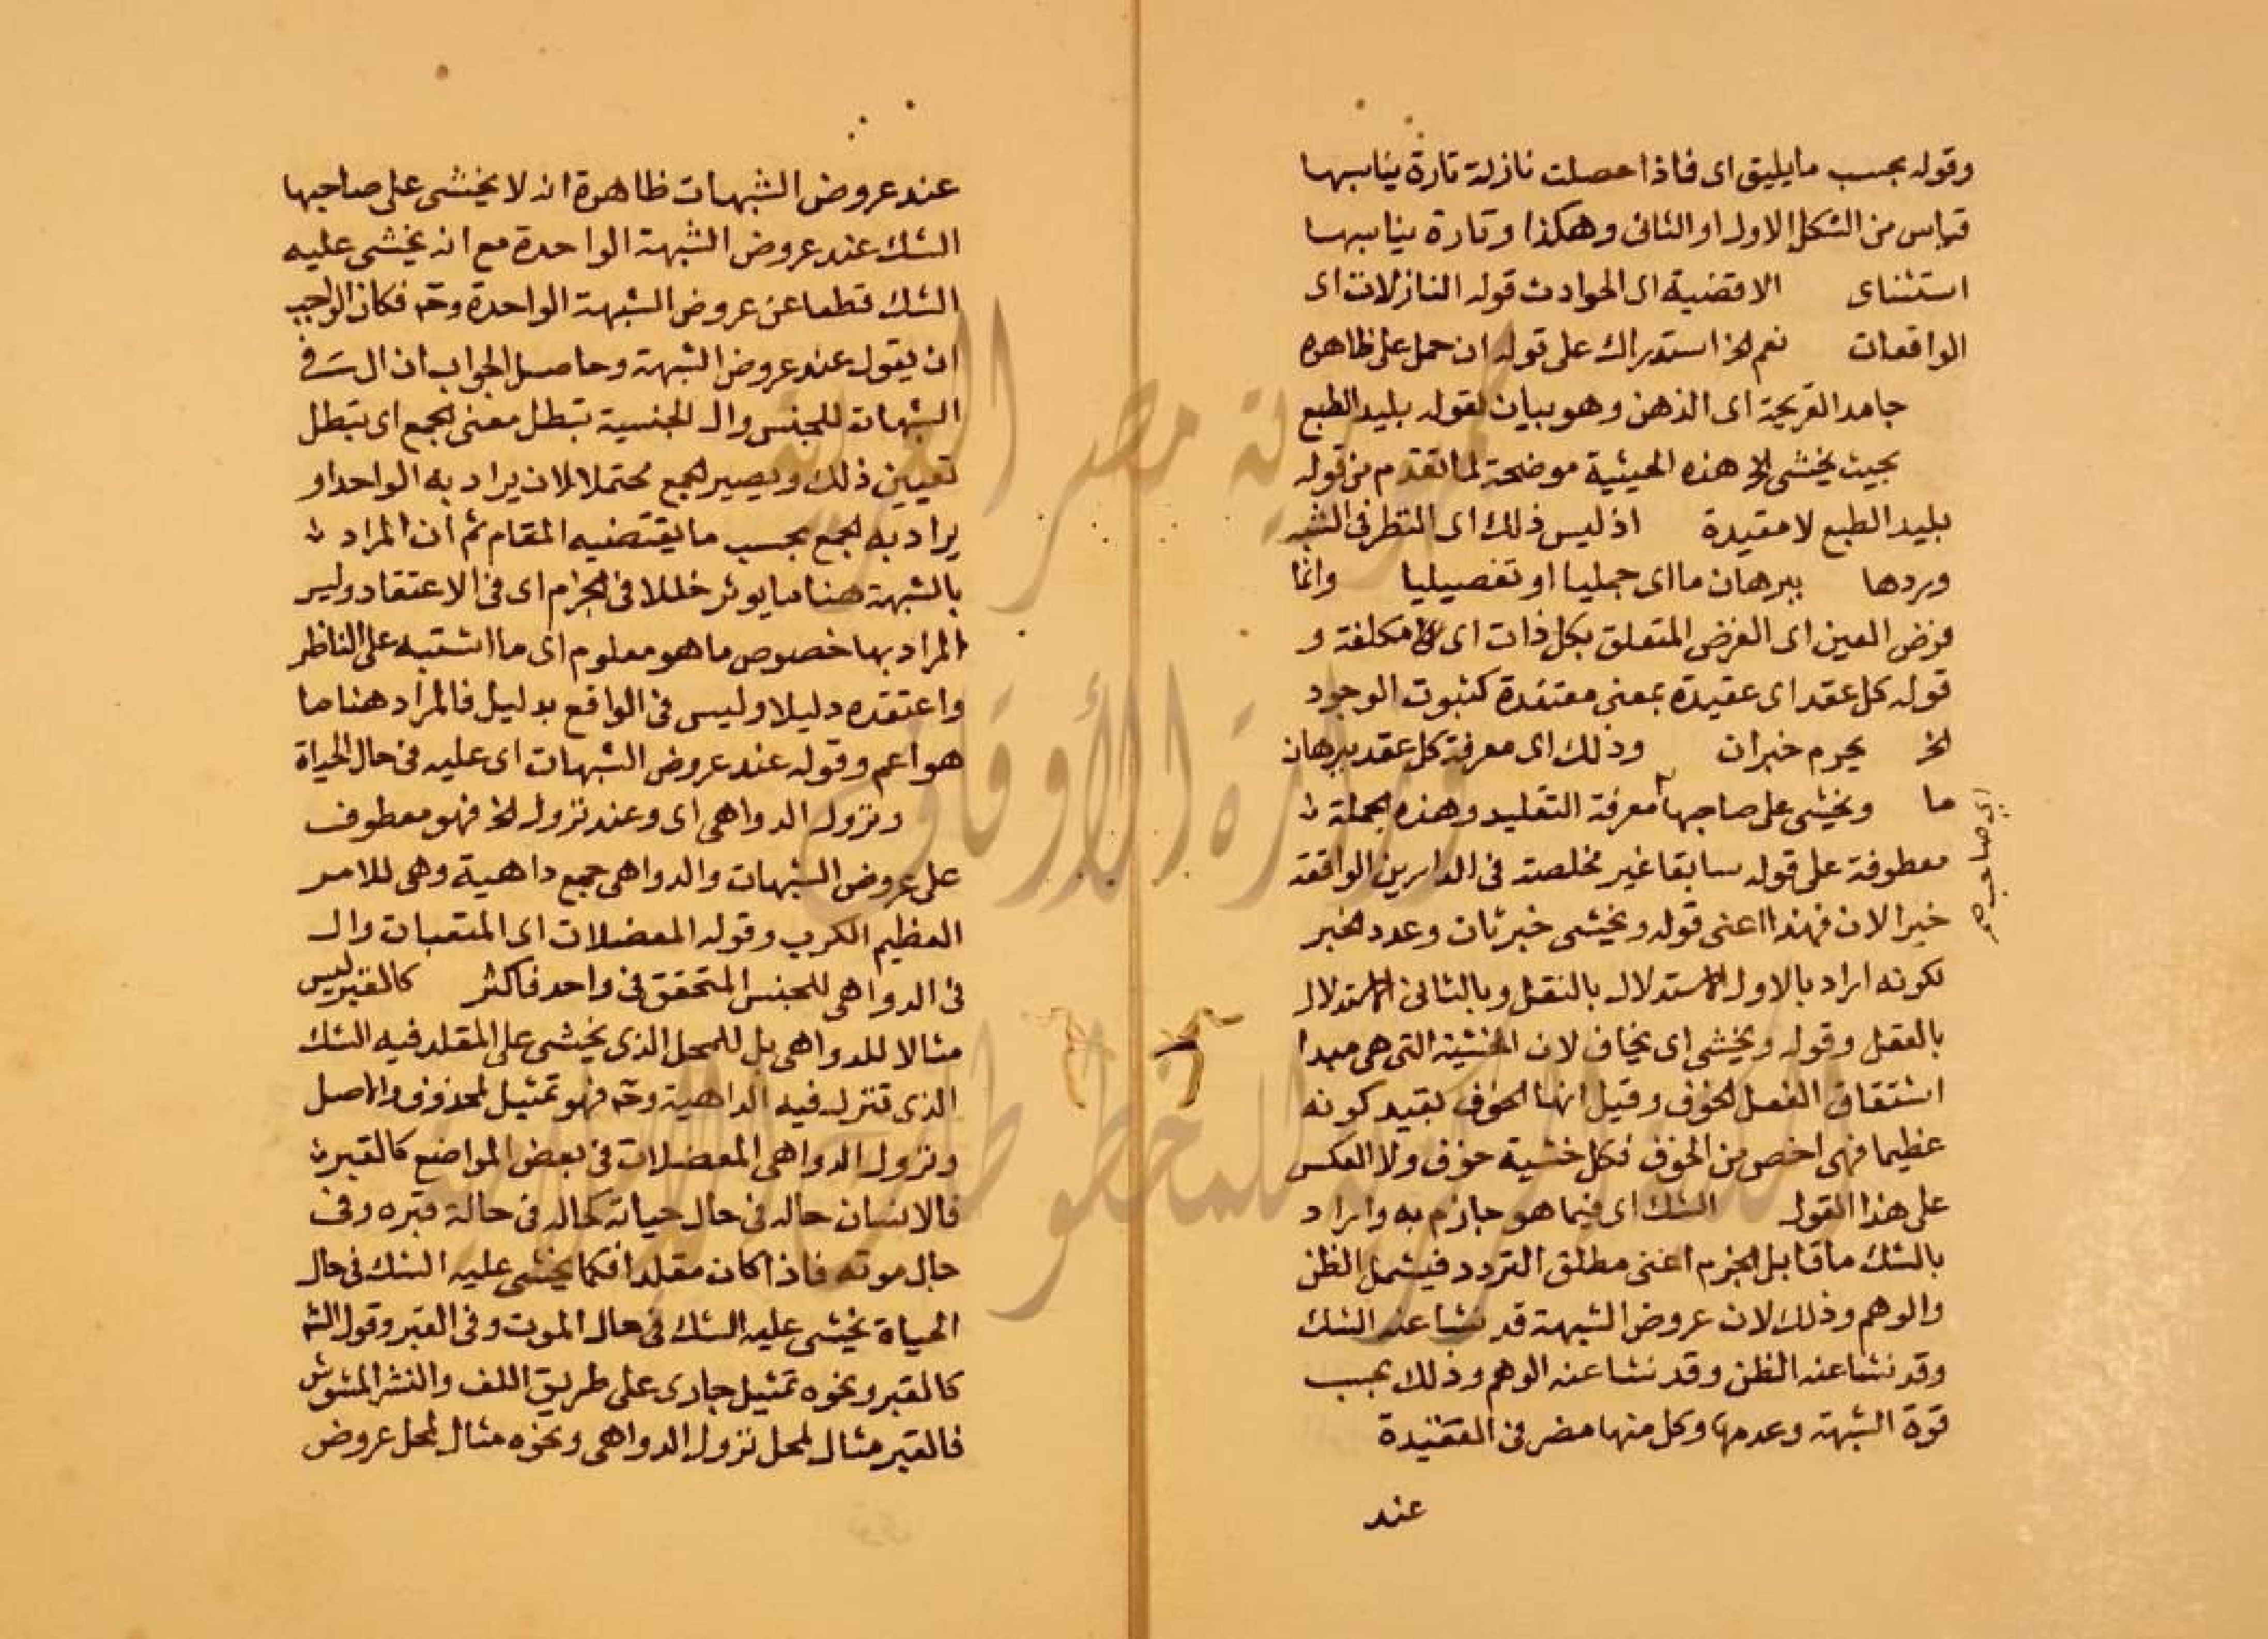 وقوله بحسب ما يليق اى فاذا حصلت نازلة تارة يناسبها
قياس من الشكل الاول او الثانى وهكذا وتارة يناسبها
استثناى الاقضية اى الحوادث قوله النازلات اى
الواقعات نعم الخ استدراك على قوله ان حمل على ظاهره
جامد القريحة اى الذهن وهو بيان لقوله بليد الطبع
بحيث يخشى الخ هذه الحيثية موضحة لما تقدم من قوله
بليد الطبع لا مقيدة اذ ليس ذلك اى النظر فى الشبه
وردها ببرهان ما اى جمليا او تفصيليا وانما
فرض العين اى الفرض المتعلق بكل ذات اى مكلفة و
قوله كل عقد اى عقيدة بمعنى معتقدة كثبوت الوجود
الخ يحرم خبر ان وذلك اى معرفة كل عقد ببرهان
ما ويخشى على صاحبها معرفة التقليد وهذه الجملة
اى صاحب
معطوفة على قوله سابقا غير مخلصة فى الدارين الواقعة
خبرا لان فهذا اعنى قوله ويخشى خبر ثان وعدد الخبر
لكونه اراد بالاول الاستدلال بالنقل وبالثانى الاستدلال
بالعقل وقوله ويخشى اى يخاف لان الخشية التى هى مبدا
اشتقاق الفعل الخوف وقيل انها الخوف بقيد كونه
عظيما فهى اخص من الخوف فكل خشية خوف ولا العكس
على هذا القول الشك اى فيما هو جازم به واراد
بالشك ما قابل الجزم اعنى مطلق التردد فيشمل الظن
والوهم وذلك لان عروض الشبهة قد نشا عنه الشك
وقد نشا عنه الظن وقد نشا عنه الوهم وذلك بحسب
قوة الشبهة وعدمها وكل منها مضر فى العقيدة
عند
عند عروض الشبهات ظاهرة انه لا يخشى على صاحبها
الشك عند عروض الشبهة الواحدة مع انه يخشى عليه
الشك قطعا عن عروض الشبهة الواحدة وح فكان الواجب
ان يقول عند عروض الشبهة وحاصل الجواب ان ال فى
الشبهات للجنس وال الجنسية تبطل معنى الجمع اى تبطل
تعيين ذلك ويصير الجمع محتملا لان يراد به الواحد او
يراد به الجمع بحسب ما يقتضيه المقام ثم ان المراد
بالشبهة هنا ما يوثر خللا فى الجزم اى فى الاعتقاد وليس
المراد بها خصوص ما هو معلوم اى ما اشتبه على الناظر
واعتقده دليلا وليس فى الواقع بدليل فالمراد هنا ما
هو اعم وقوله عند عروض الشبهات اى عليه فى حال الحياة
ونزول الدواهى اى وعند نزول الخ فهو معطوف
على عروض الشبهات والدواهى جمع داهية وهى للامر
العظيم الكرب وقوله المعضلات اى المتعبات وال
فى الدواهى للجنس المتحقق فى واحد فاكثر كالقبر ليس
مثالا للدواهى بل للمحل الذى يخشى على المقلد فيه الشك
الذى تنزل فيه الداهية وح فهو تمثيل لمحذوف والاصل
ونزول الدواهى المعضلات فى بعض المواضع كالقبر
فالانسان حاله فى حال حياته كحاله فى حالة قبره وفى
حال موته فاذا كان مقلدا فكما يخشى عليه الشك فى حال
الحياة يخشى عليه الشك فى حال الموت وفى القبر وقول الش
كالقبر ونحوه تمثيل جارى على طريق اللف والنشر المشوش
فالقبر مثال لمحل نزول الدواهى ونحوه مثال لمحل عروض